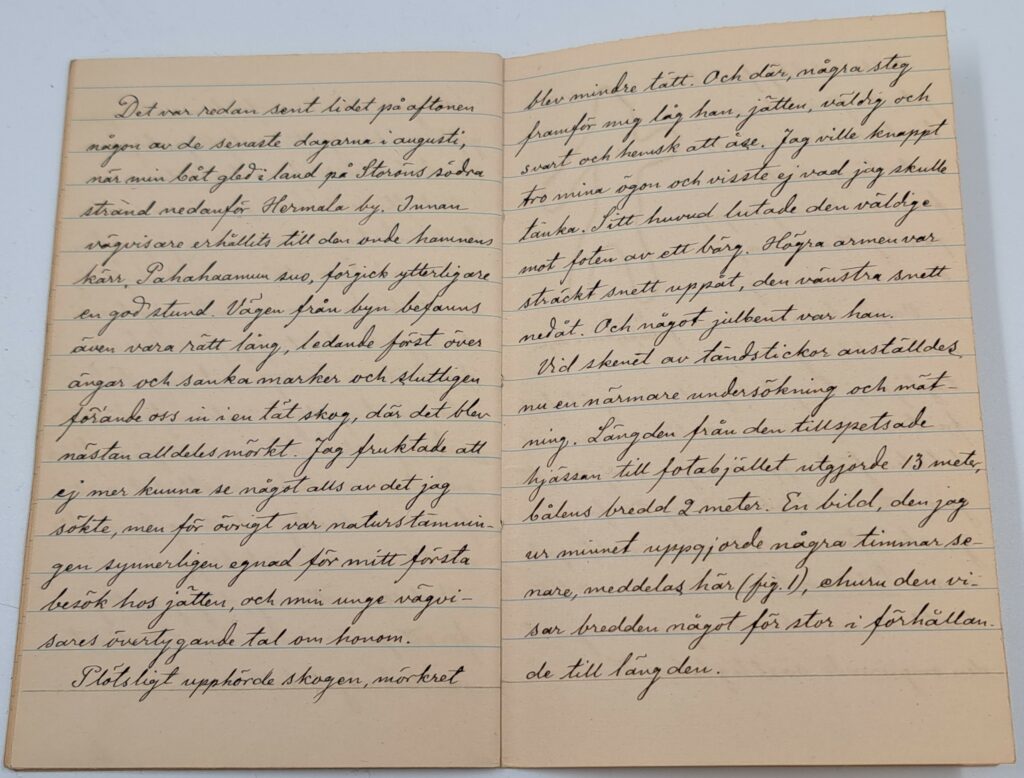 Det var redan sent lidet på aftonen
någon av de senaste dagarna i augusti,
när min båt gled i land på Storöns södra
strand nedanför Hermala by. Innan
vägvisare erhållits till den onde hamnens
kärr, Pahahaamun suo, förgick ytterligare
en god stund. Vägen från byn befanns
även vara rätt lång, ledande först över
ängar och sanka marker och slutligen
förande oss in i en tät skog, där det blev
nästan alldeles mörkt. Jag fruktade att
ej mer kunna se något alls av det jag
sökte, men för övrigt var naturstämnin-
gen synnerligen egnad för mitt första
besök hos jätten, och min unge vägvi-
sares övertygande tal om honom.
Plötsligt upphörde skogen, mörkret
blev mindre tätt. Och där, några steg
framför mig låg han, jätten, väldig och
svart och hemsk att åse. Jag ville knappt
tro mina ögon och visste ej vad jag skulle
tänka. Sitt huvud lutade den väldige
mot foten av ett bärg. Högra armen var
sträckt snett uppåt, den vänstra snett
nedåt. Och något julbent var han.
Vid skenet av tändstickor anställdes
nu en närmare undersökning och mät-
ning. Längden från den tillspetsade
hjässan till fotabjället utgjorde 13 meter,
bålens bredd 2 meter. En bild, den jag
ur minnet uppgjorde några timmar se-
nare, meddelas här (fig. 1), churu den vi-
sar bredden något för stor i förhållan-
de till längden.